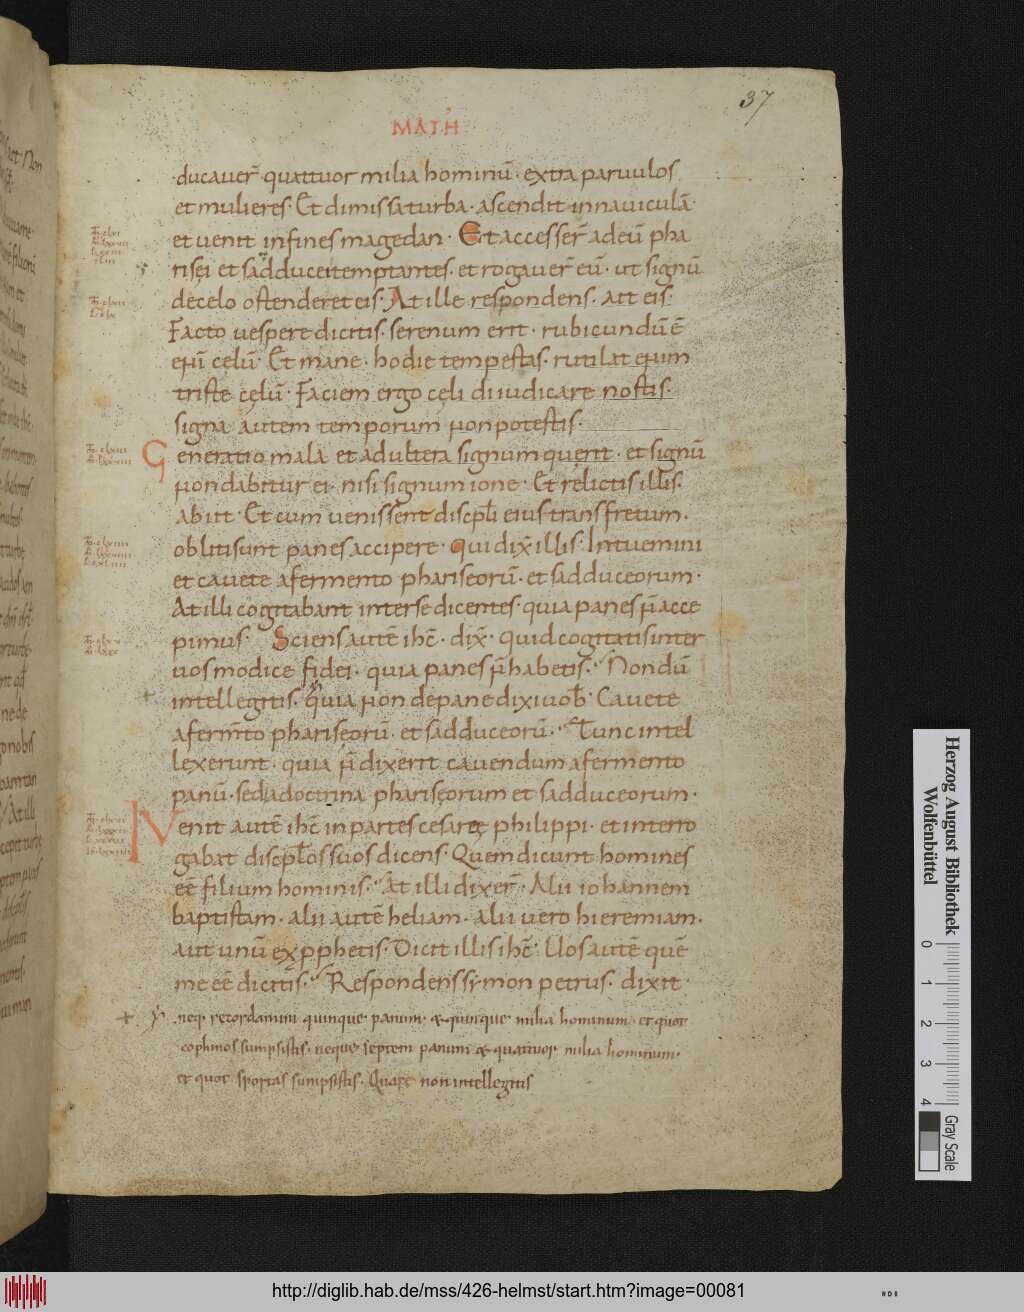 37
MATH
ducauer̄ · quattuor milia hominū · extra paruulos
et mulieres · Et dimissa turba · ascendit in nauiculā ·
et uenit in fines magedan · Et accesser̄ ad eū pha
risei et sadducei temptantes · et rogauer̄ eū · ut signū
de celo ostenderet eis · At ille respondens · ait eis ·
Facto uespere dicitis · serenum erit · rubicundū ē
enī cęlū · Et mane · hodie tempestas · rutilat enim
triste cęlū · Faciem ergo cęli diiudicare nostis ·
signa autem temporum non potestis ·
Generatio mala et adultera signum querit · et signū
non dabitur ei · nisi signum ione · Et relictis illis
abiit · Et cum uenissent discipl̄i eius trans fretum ·
obliti sunt panes accipere · qui dix̄ illis · Intuemini
et cauete a fermento phariseorū · et sadduceorum ·
At illi cogitabant inter se dicentes · quia panes n̄ acce
pimus · Sciens autē ihc̄ · dix̄ · quid cogitatis inter
uos modice fidei · quia panes n̄ habetis · Nondū
intellegitis · quia non de pane dixi uob̄ · Cauete
a ferm̄to phariseorū · et sadduceorū · Tunc intel
lexerunt · quia n̄ dixerit cauendum a fermento
panū · sed a doctrina phariseorum et sadduceorum ·
Venit autē ihc̄ in partes cesareę philippi · et interro
gabat discipl̄os suos dicens · Quem dicunt homines
eē filium hominis · At illi dixer̄ · Alii iohannem
baptistam · alii autē heliam · alii uero hieremiam ·
aut unū ex pphetis · Dicit illis ihc̄ · Uos autē quē
me eē dicitis · Respondens symon petrus · dixit ·
neq · recordamini quinque panum · & quinque milia hominum · et quot
cophinos sumpsistis · neque septem panum & quattuor milia hominum ·
et quot sportas sumpsistis · Quare non intellegitis
Herzog August Bibliothek
Wolfenbüttel
0 1 2 3 4
Gray Scale
http://diglib.hab.de/mss/426-helmst/start.htm?image=00081